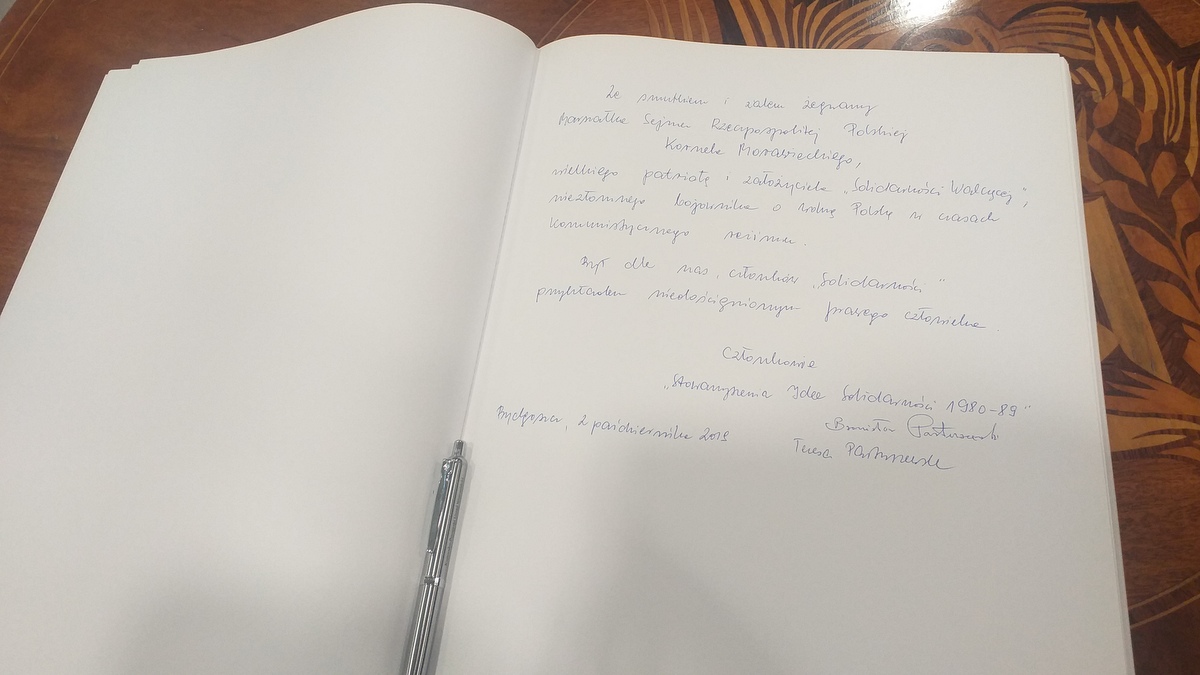 Ze smutkiem i żalem żegnamy
Marszałka Sejmu Rzeczpospolitej Polskiej
Kornela Morawieckiego,
wielkiego patriotę i założyciela „Solidarności Walczącej”,
niezłomnego bojownika o wolną Polskę w czasach
komunistycznego reżimu.
Był dla nas, członków „Solidarności”
przykładem niedoścignionym prawego człowieka.
Członkowie
„Stowarzyszenia Idee Solidarności 1980-89”
Bronisław
Bydgoszcz, 2 października 2019
Teresa